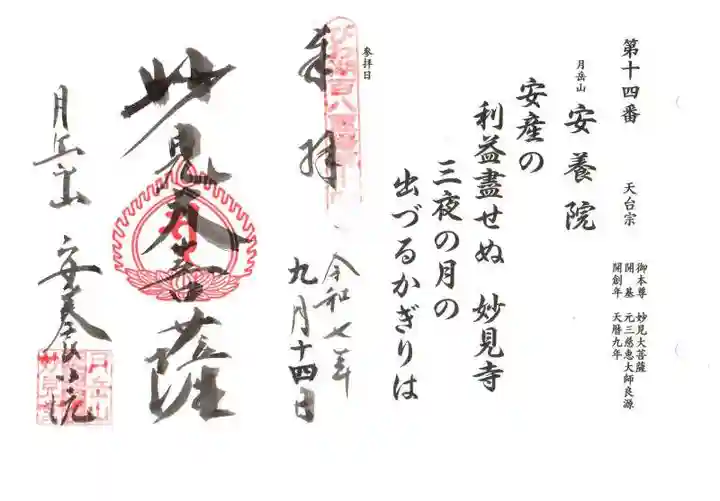 第十四番 天台宗
御本尊 妙見大菩薩
開基 元三慈恵大師良源
開創年 天暦九年
月岳山 安養院
安産の
利益盡せぬ 妙見寺
三夜の月の
出づるかぎりは
参拝日
奉拝
令和七年
九月十四日
妙見大菩薩
月岳山 安養院
月岳山